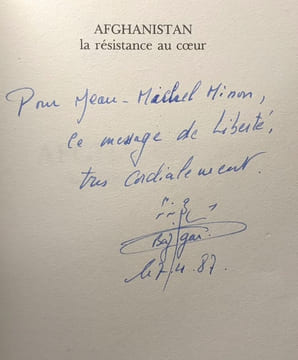 AFGHANISTAN
la résistance au cœur
Pour Jean-Michel Minon,
ce message de Liberté,
très Cordialement.
Bazgar
le 7.4.87.